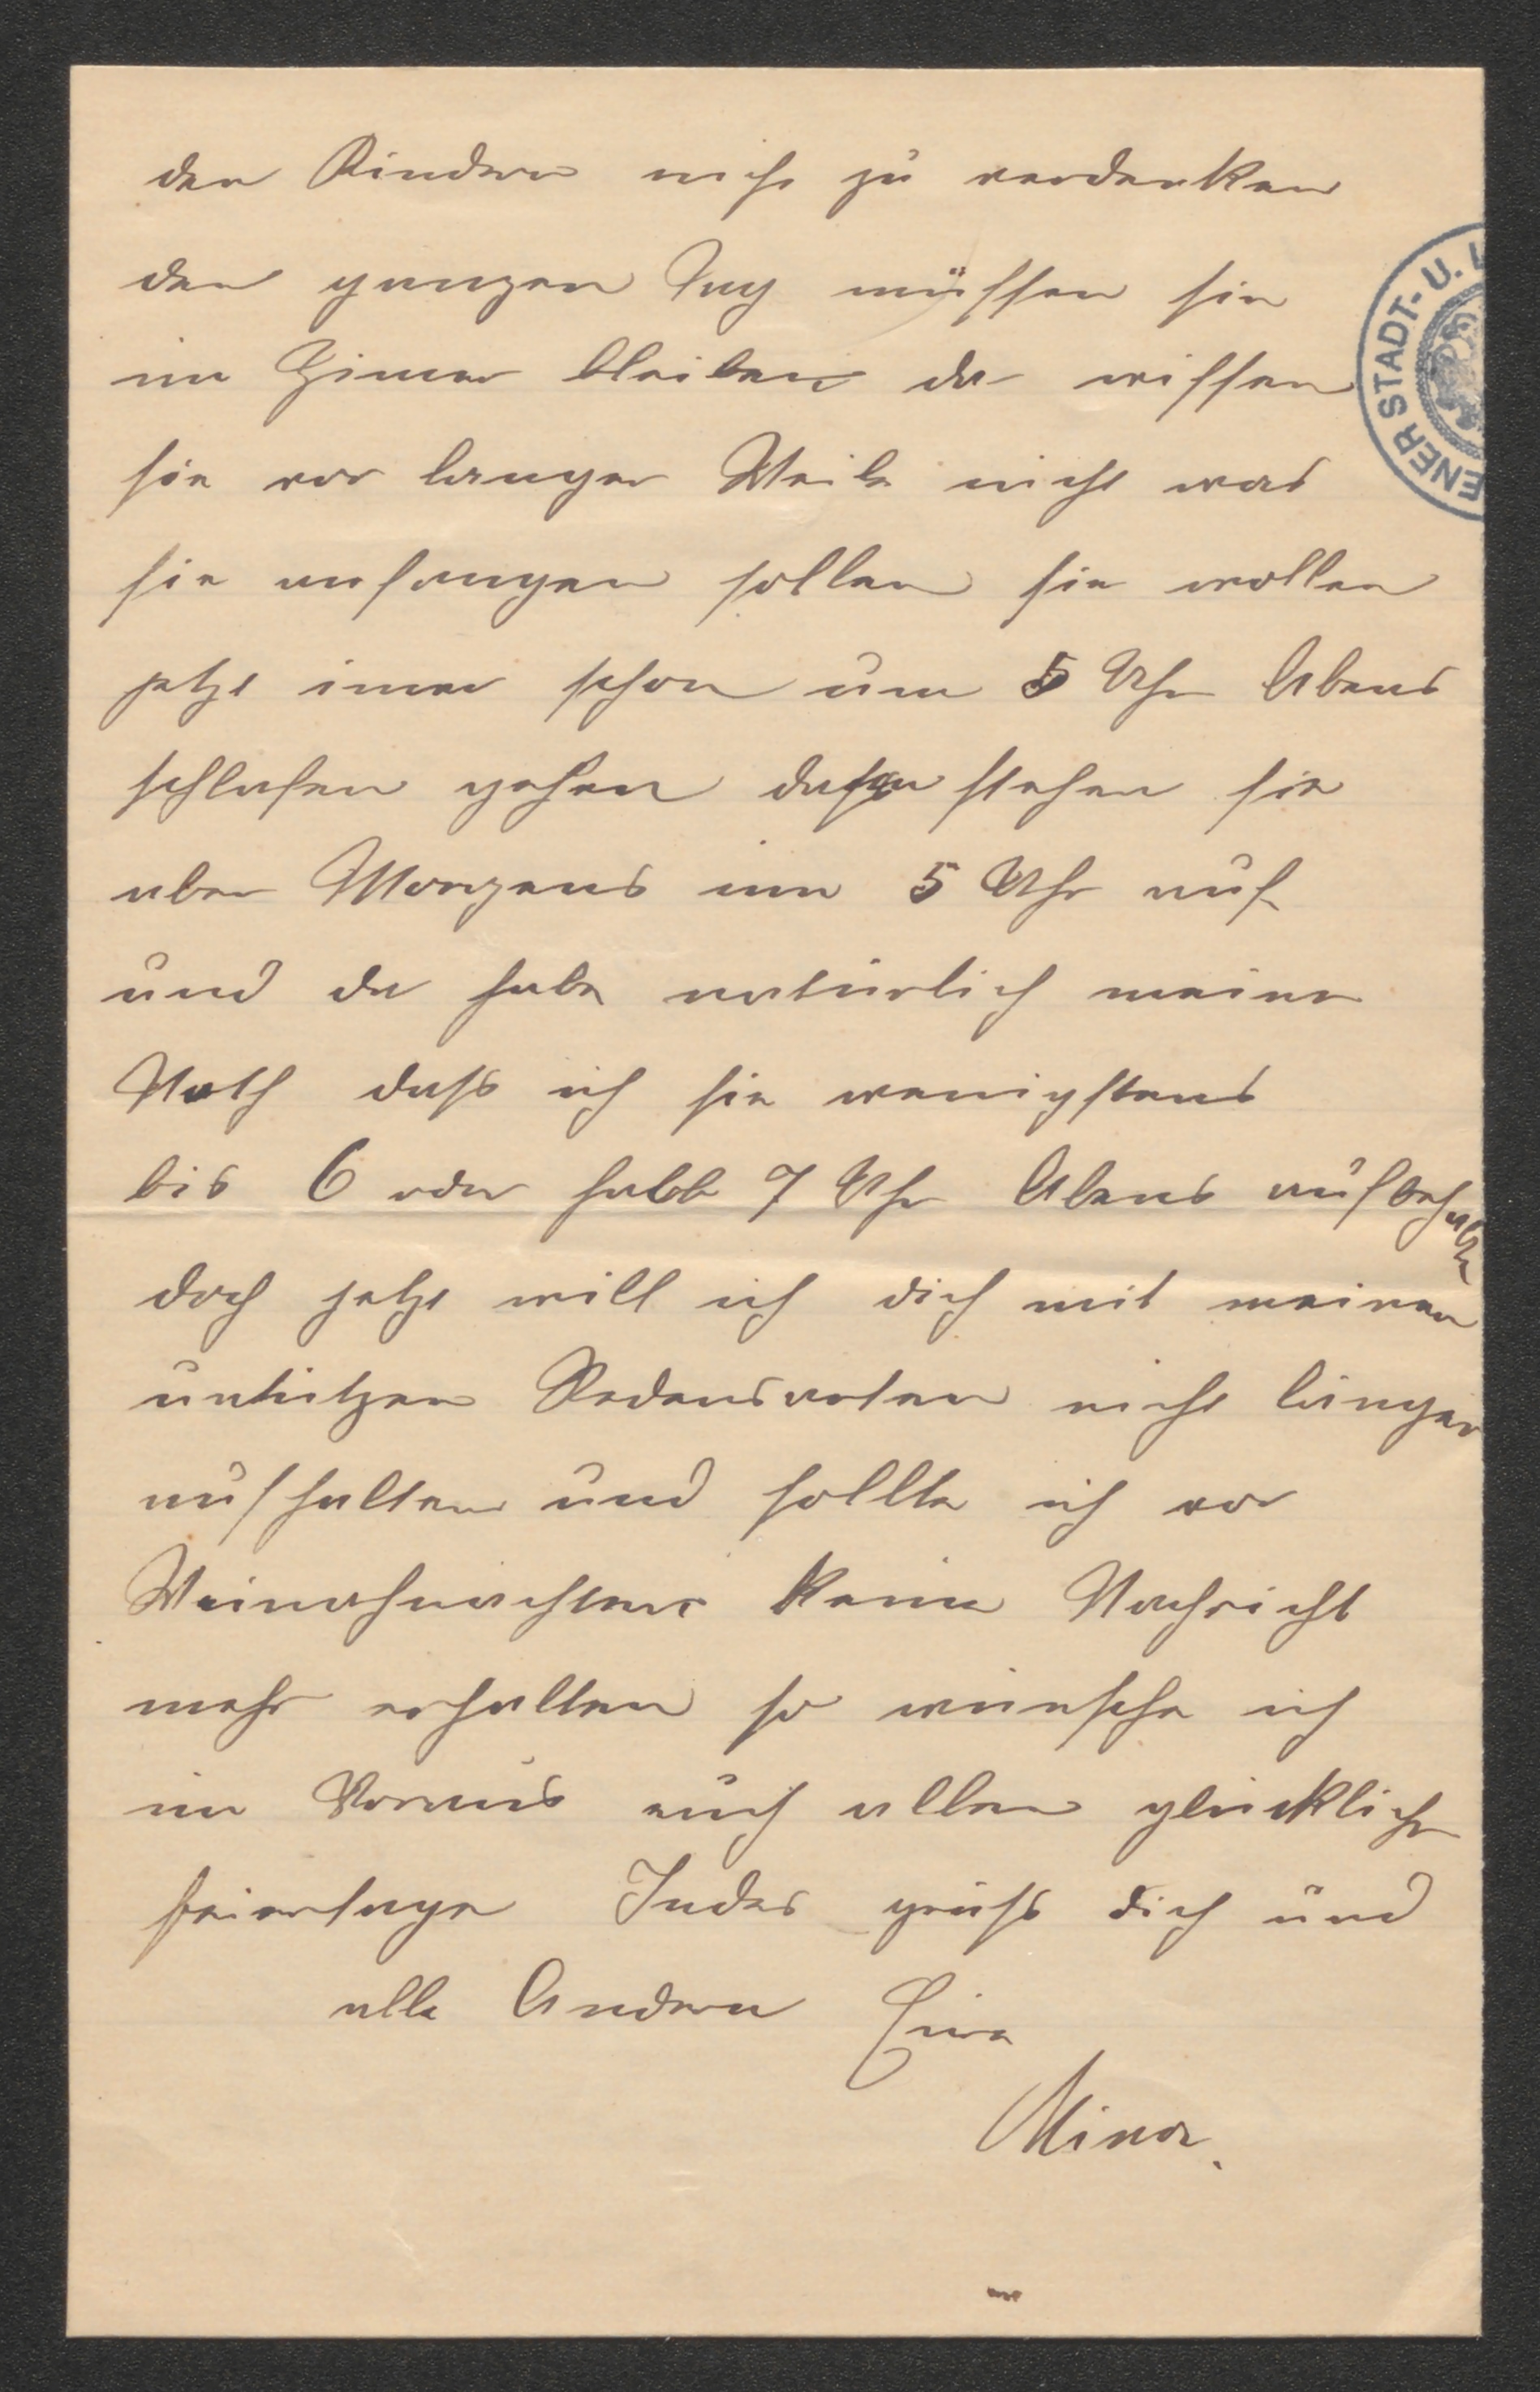 den Kindern nicht zu verdenken
den ganzen Tag müssen sie
im Zimer bleiben da wissen
sie vor langer Weile nicht was
sie anfangen sollen sie wollen
jetzt imer schon um 5 Uhr Abens
schlafen gehen dafür stehen sie
aber Morgens um 5 Uhr auf
und da habe natürlich meine
Noth dass ich sie wenigstens
bis 6 oder halb 7 Uhr Abens aufbehalte
doch jetzt will ich dich mit meinen
unützen Redensarten nicht länger
aufhalten und sollte ich vor
Weinahnachten keine Nachricht
mehr erhalten so wünsche ich
im Voraus euch allen glückliche
feiertage Indes grüßt dich und
alle Andern Eure
Mina.
ENER STADT- U. L